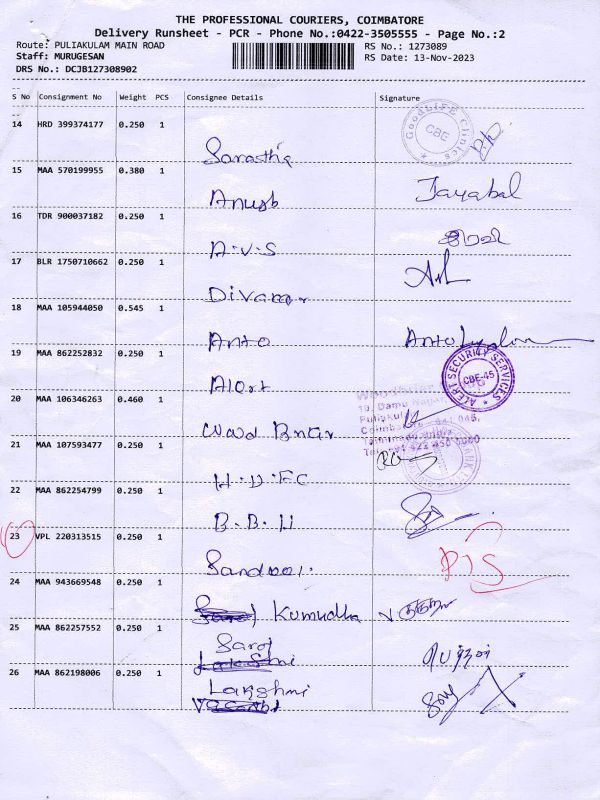 THE PROFESSIONAL COURIERS, COIMBATORE
Delivery Runsheet - PCR - Phone No.:0422-3505555 - Page No.:2
Route: PULIAKULAM MAIN ROAD RS No.: 1273089
Staff: MURUGESAN RS Date: 13-Nov-2023
DRS No.: DCJB127308902
S No Consignment No Weight PCS Consignee Details Signature
14 HRD 399374177 0.250 1
GoodLIFE Clinics CBE
15 MAA 570199955 0.380 1
Jayabal
16 TDR 900037182 0.250 1
A.V.S
17 BLR 1750710662 0.250 1
18 MAA 105944050 0.545 1
Anto
19 MAA 862252832 0.250 1
Alert
ALERT SECURITY SERVICES CBE-45
20 MAA 106346263 0.460 1
21 MAA 107593477 0.250 1
H.D.FC
22 MAA 862254799 0.250 1
B.B.H
23 VPL 220313515 0.250 1
24 MAA 943669548 0.250 1
Kumudha
25 MAA 862257552 0.250 1
Saroj
26 MAA 862198006 0.250 1
Lakshmi